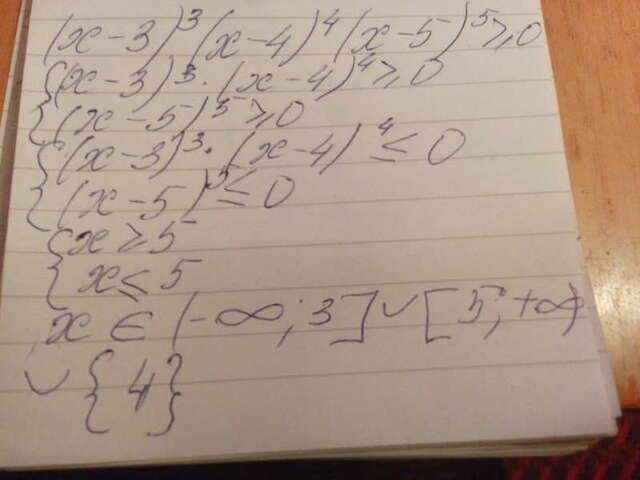 (x-3)³(x-4)⁴(x-5)⁵≥0
{(x-3)³·(x-4)⁴≥0
{(x-5)⁵≥0
{(x-3)³·(x-4)⁴≤0
{(x-5)⁵≤0
{x≥5
{x≤5
x∈(-∞;3]∪[5;+∞)
∪{4}